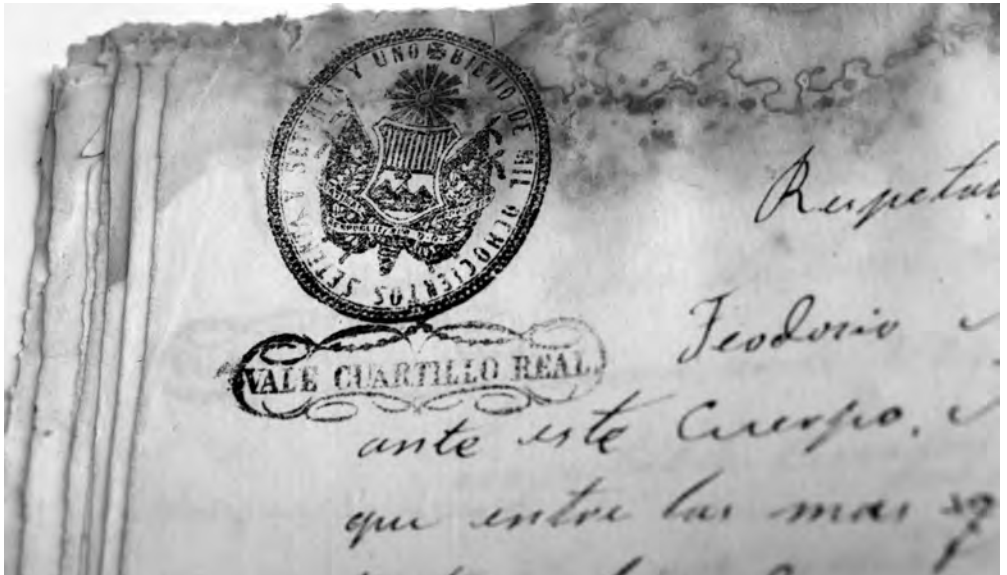 BIENIO DE MIL OCHOCIENTOS SETENTA Y SETENTA Y UNO
VALE CUARTILLO REAL.
Teodosio
ante este Cuerpo,
que entre las mas